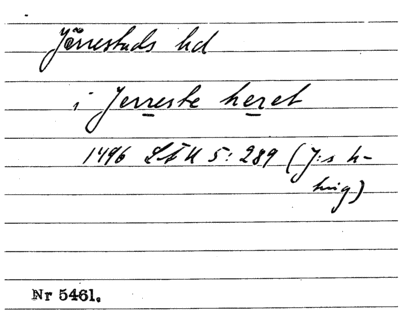 Järrestads hd
i Jerreste heret
1496 LÄU 5:289 (J:s h-
hvg)
Nr 5461.